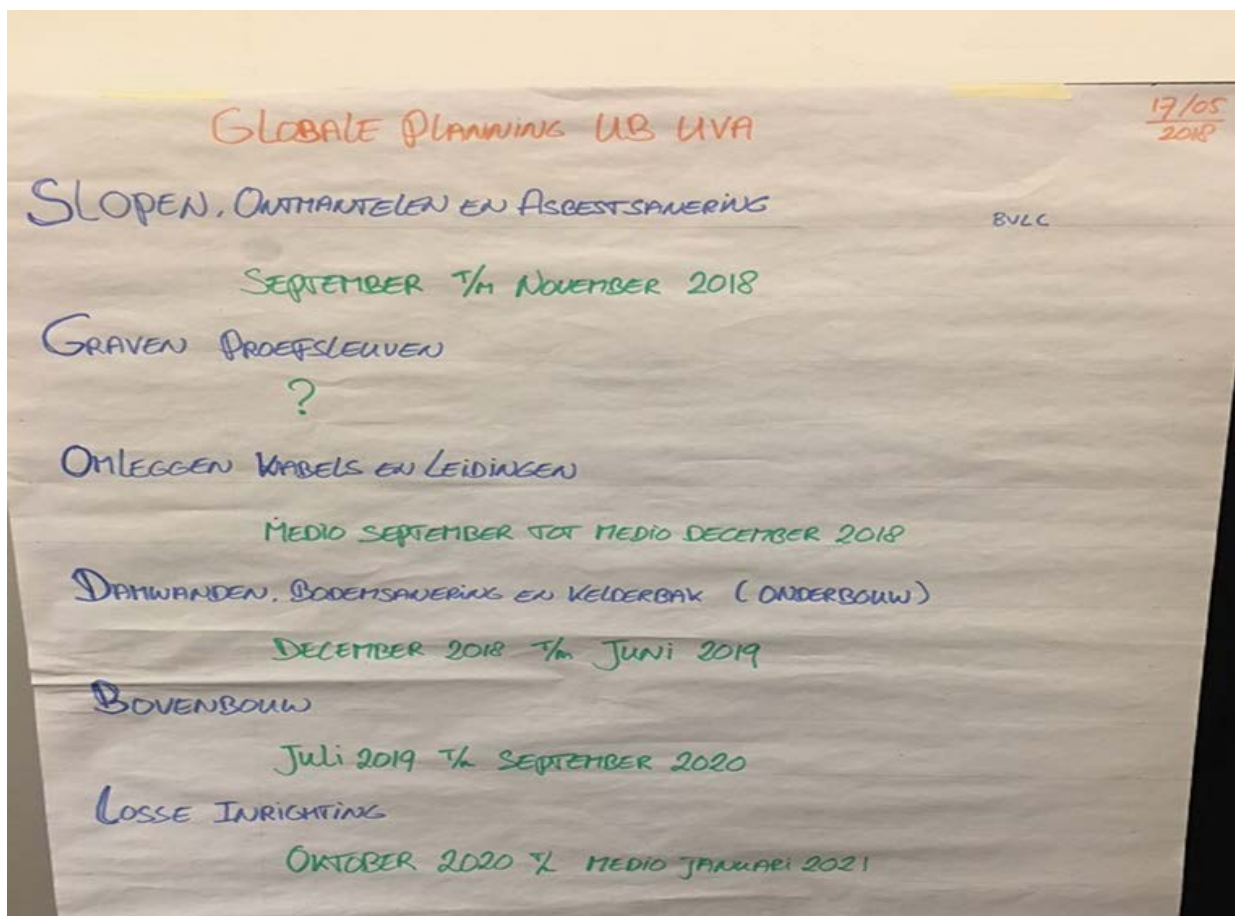 GLOBALE PLANNING UB UVA
17/05
2018
SLOPEN, ONTMANTELEN EN ASBESTSANERING
BVLC
SEPTEMBER T/M NOVEMBER 2018
GRAVEN PROEFSLEUVEN
?
OMLEGGEN KABELS EN LEIDINGEN
MEDIO SEPTEMBER TOT MEDIO DECEMBER 2018
DAMWANDEN, BODEMSANERING EN KELDERBAK (ONDERBOUW)
DECEMBER 2018 T/M JUNI 2019
BOVENBOUW
JULI 2019 T/M SEPTEMBER 2020
LOSSE INRICHTING
OKTOBER 2020 T/M MEDIO JANUARI 2021